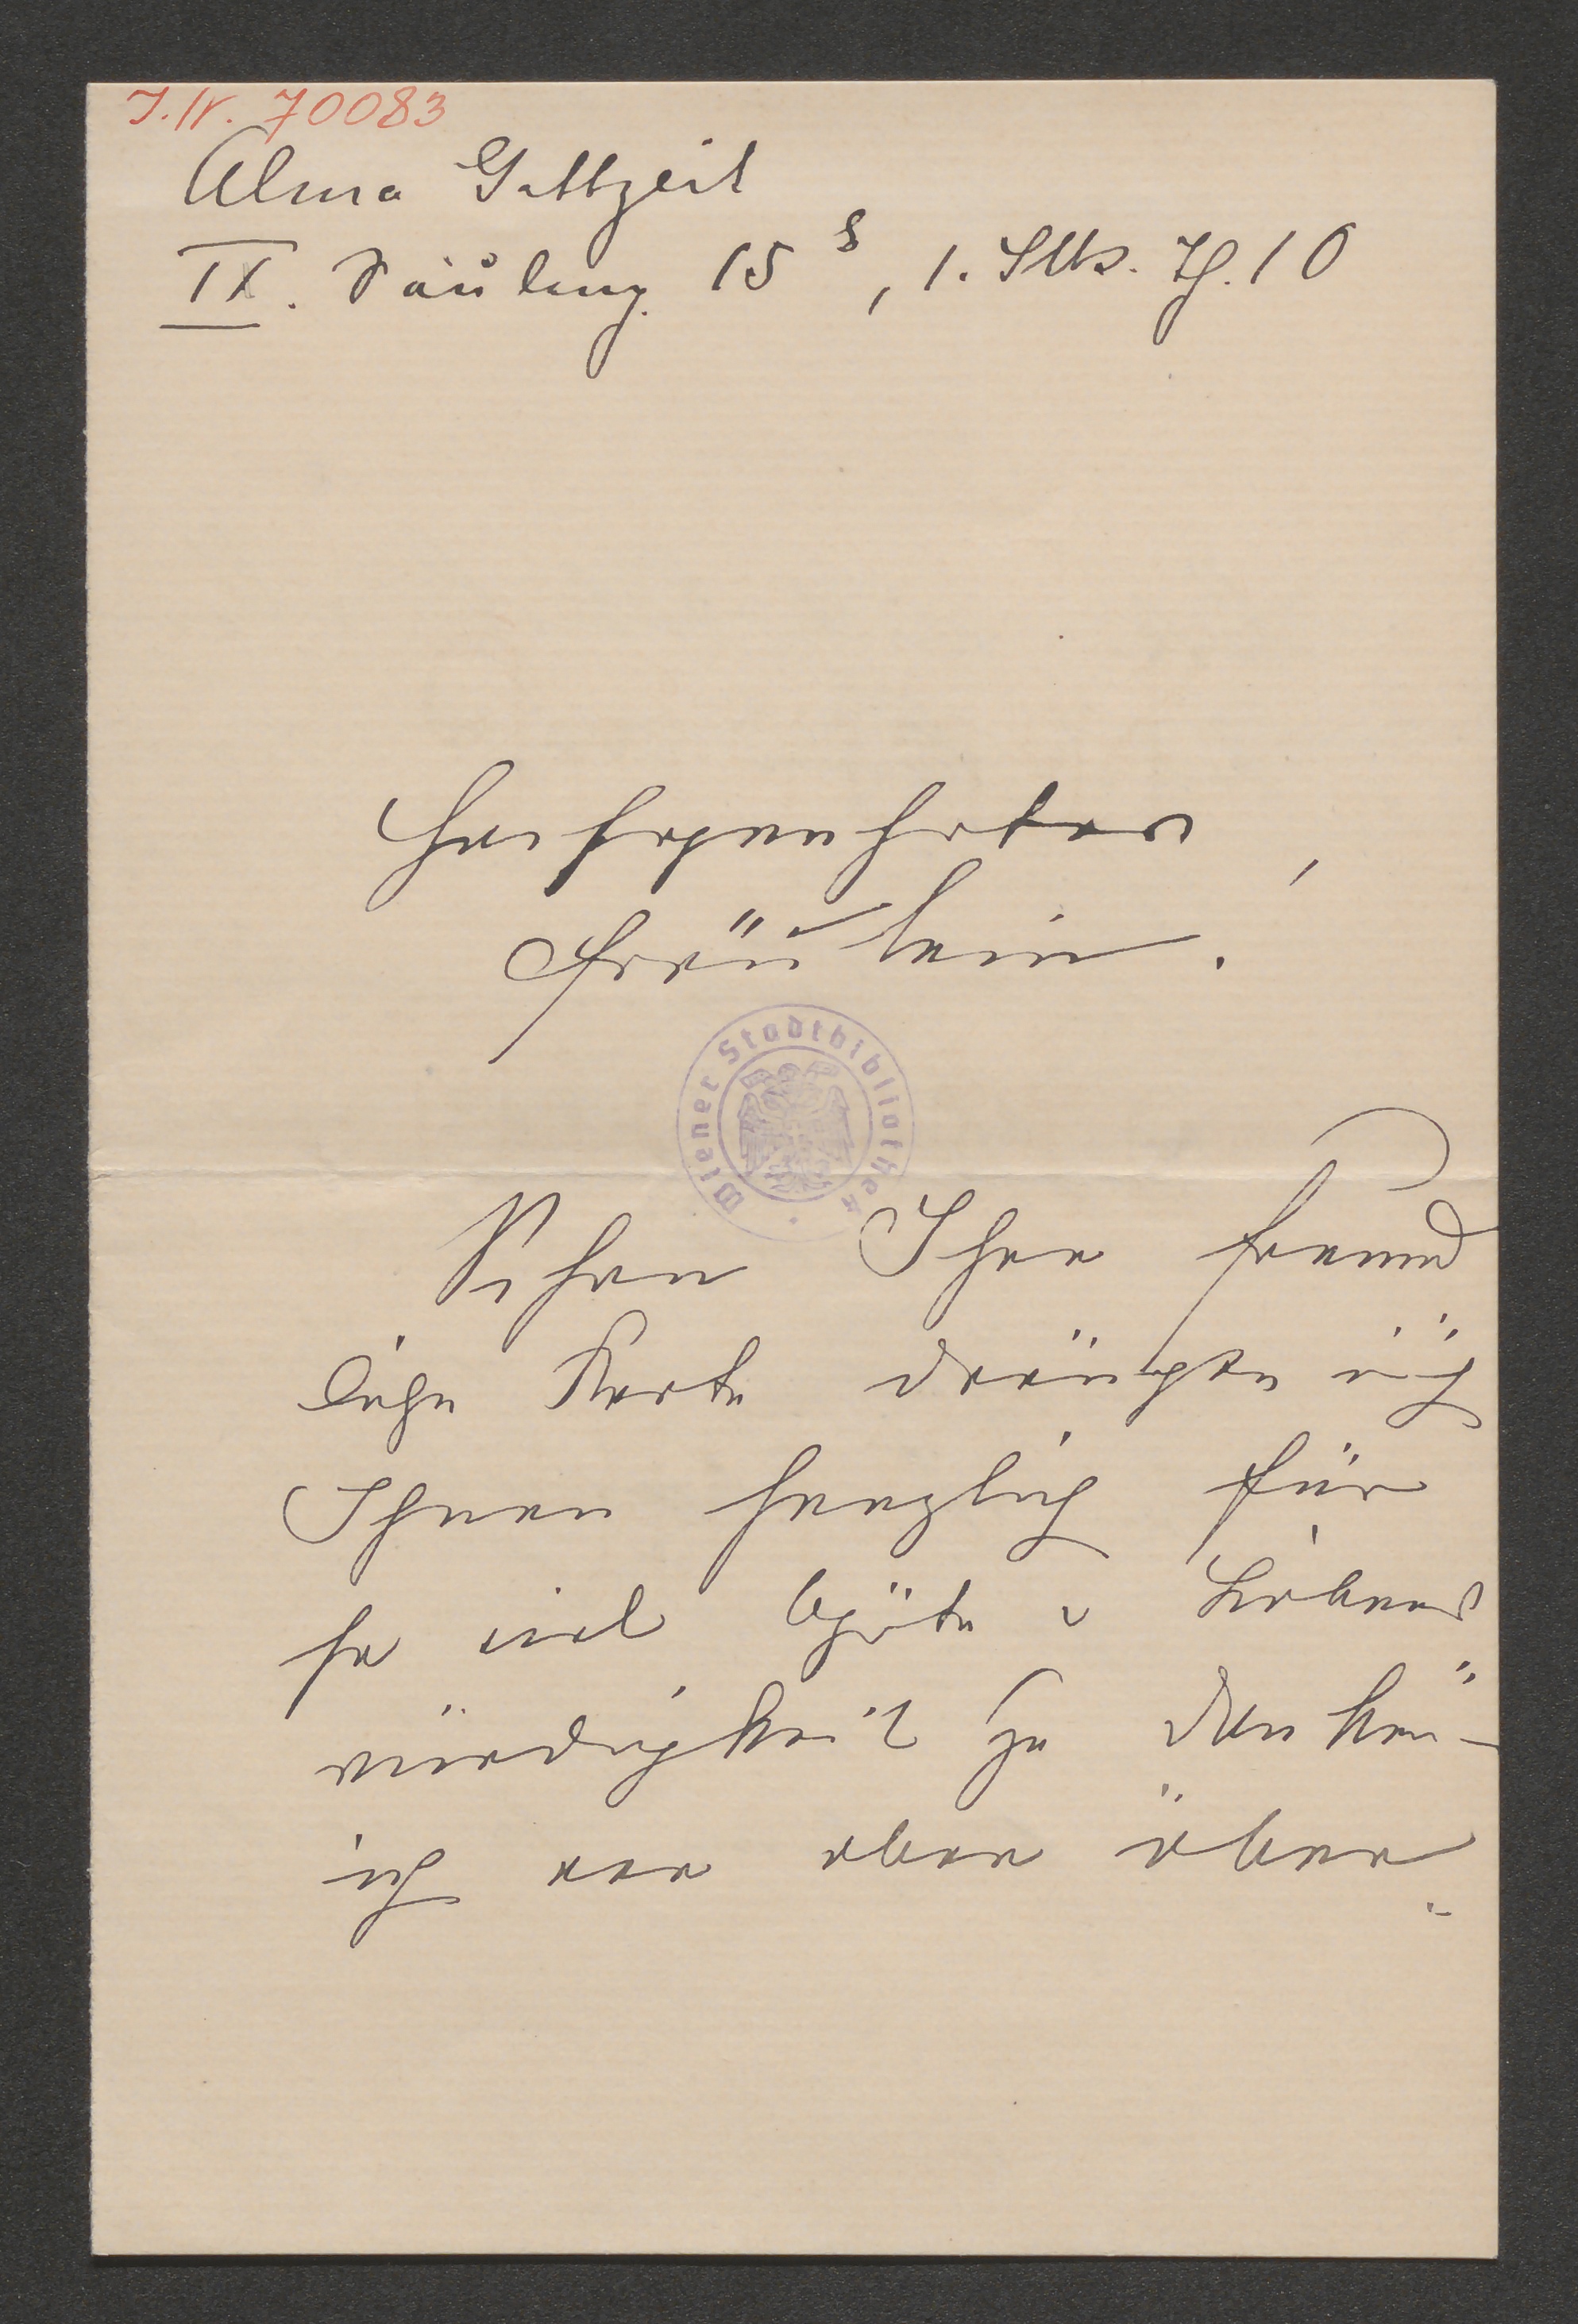 J.N. 70083
Alma Guttzeit
IX. 15, 1. Stk. Th. 10
Hochgeehrtes
Fräulein.
Wiener Stadtbibliothek
Schon Ihre freund
liche Karte drängte mich
Ihnen herzlich für
so viel Güte u Liebens
würdigkeit zu danken -
ich war aber über